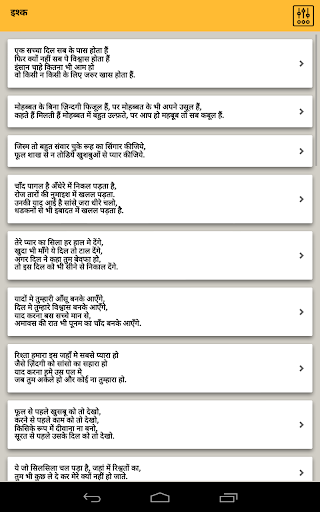 इश्क
एक सच्चा दिल सब के पास होता हैं
फिर क्यों नहीं सब पे विश्वास होता हैं
इंसान चाहे कितना भी आम हो
वो किसी न किसी के लिए जरुर खास होता हैं.
मोहब्बत के बिना ज़िन्दगी फिजूल हैं, पर मोहब्बत के भी अपने उसूल हैं,
कहते हैं मिलती हैं मोहब्बत में बहुत उल्फ़ते, पर आप हो महबूब तो सब कबूल हैं.
जिस्म तो बहुत संवार चुके रूह का सिंगार कीजिये,
फूल शाख से न तोडिये खुशबुओं से प्यार कीजिये.
चाँद पागल है अँधेरे में निकल पड़ता है,
रोज तारों की नुमाइश में खलल पड़ता है.
उनकी याद आई है सांसे जरा धीरे चलो,
धडकनों से भी इबादत में खलल पड़ता है.
तेरे प्यार का सिला हर हाल मे देंगे,
खुदा भी माँगे ये दिल तो टाल देंगे,
अगर दिल ने कहा तुम बेवफा हो,
तो इस दिल को भी सीने से निकाल देंगे.
यादों मे तुम्हारी आँसू बनके आएँगे,
दिल मे तुम्हारे विश्वास बनके आएँगे,
याद करना बस सच्चे मान से,
अमावस की रात भी पूनम का चाँद बनके आएँगे.
रिश्ता हमारा इस जहाँ मे सबसे प्यारा हो
जैसे ज़िंदगी को सांसो का सहारा हो
याद करना हमे उस पल मे
जब तुम अकेले हो और कोई ना तुम्हारा हो.
फूल से पहले खुसबू को तो देखो,
करने से पहले काम को तो देखो,
किसिके रूप मे दीवाना ना बनो,
सूरत से पहले उसके दिल को तो देखो.
ये जो सिलसिला चल पड़ा है, जहां में रिश्वतों का,
तुम भी कुछ ले दे कर मेरे क्यों नहीं हो जाते.